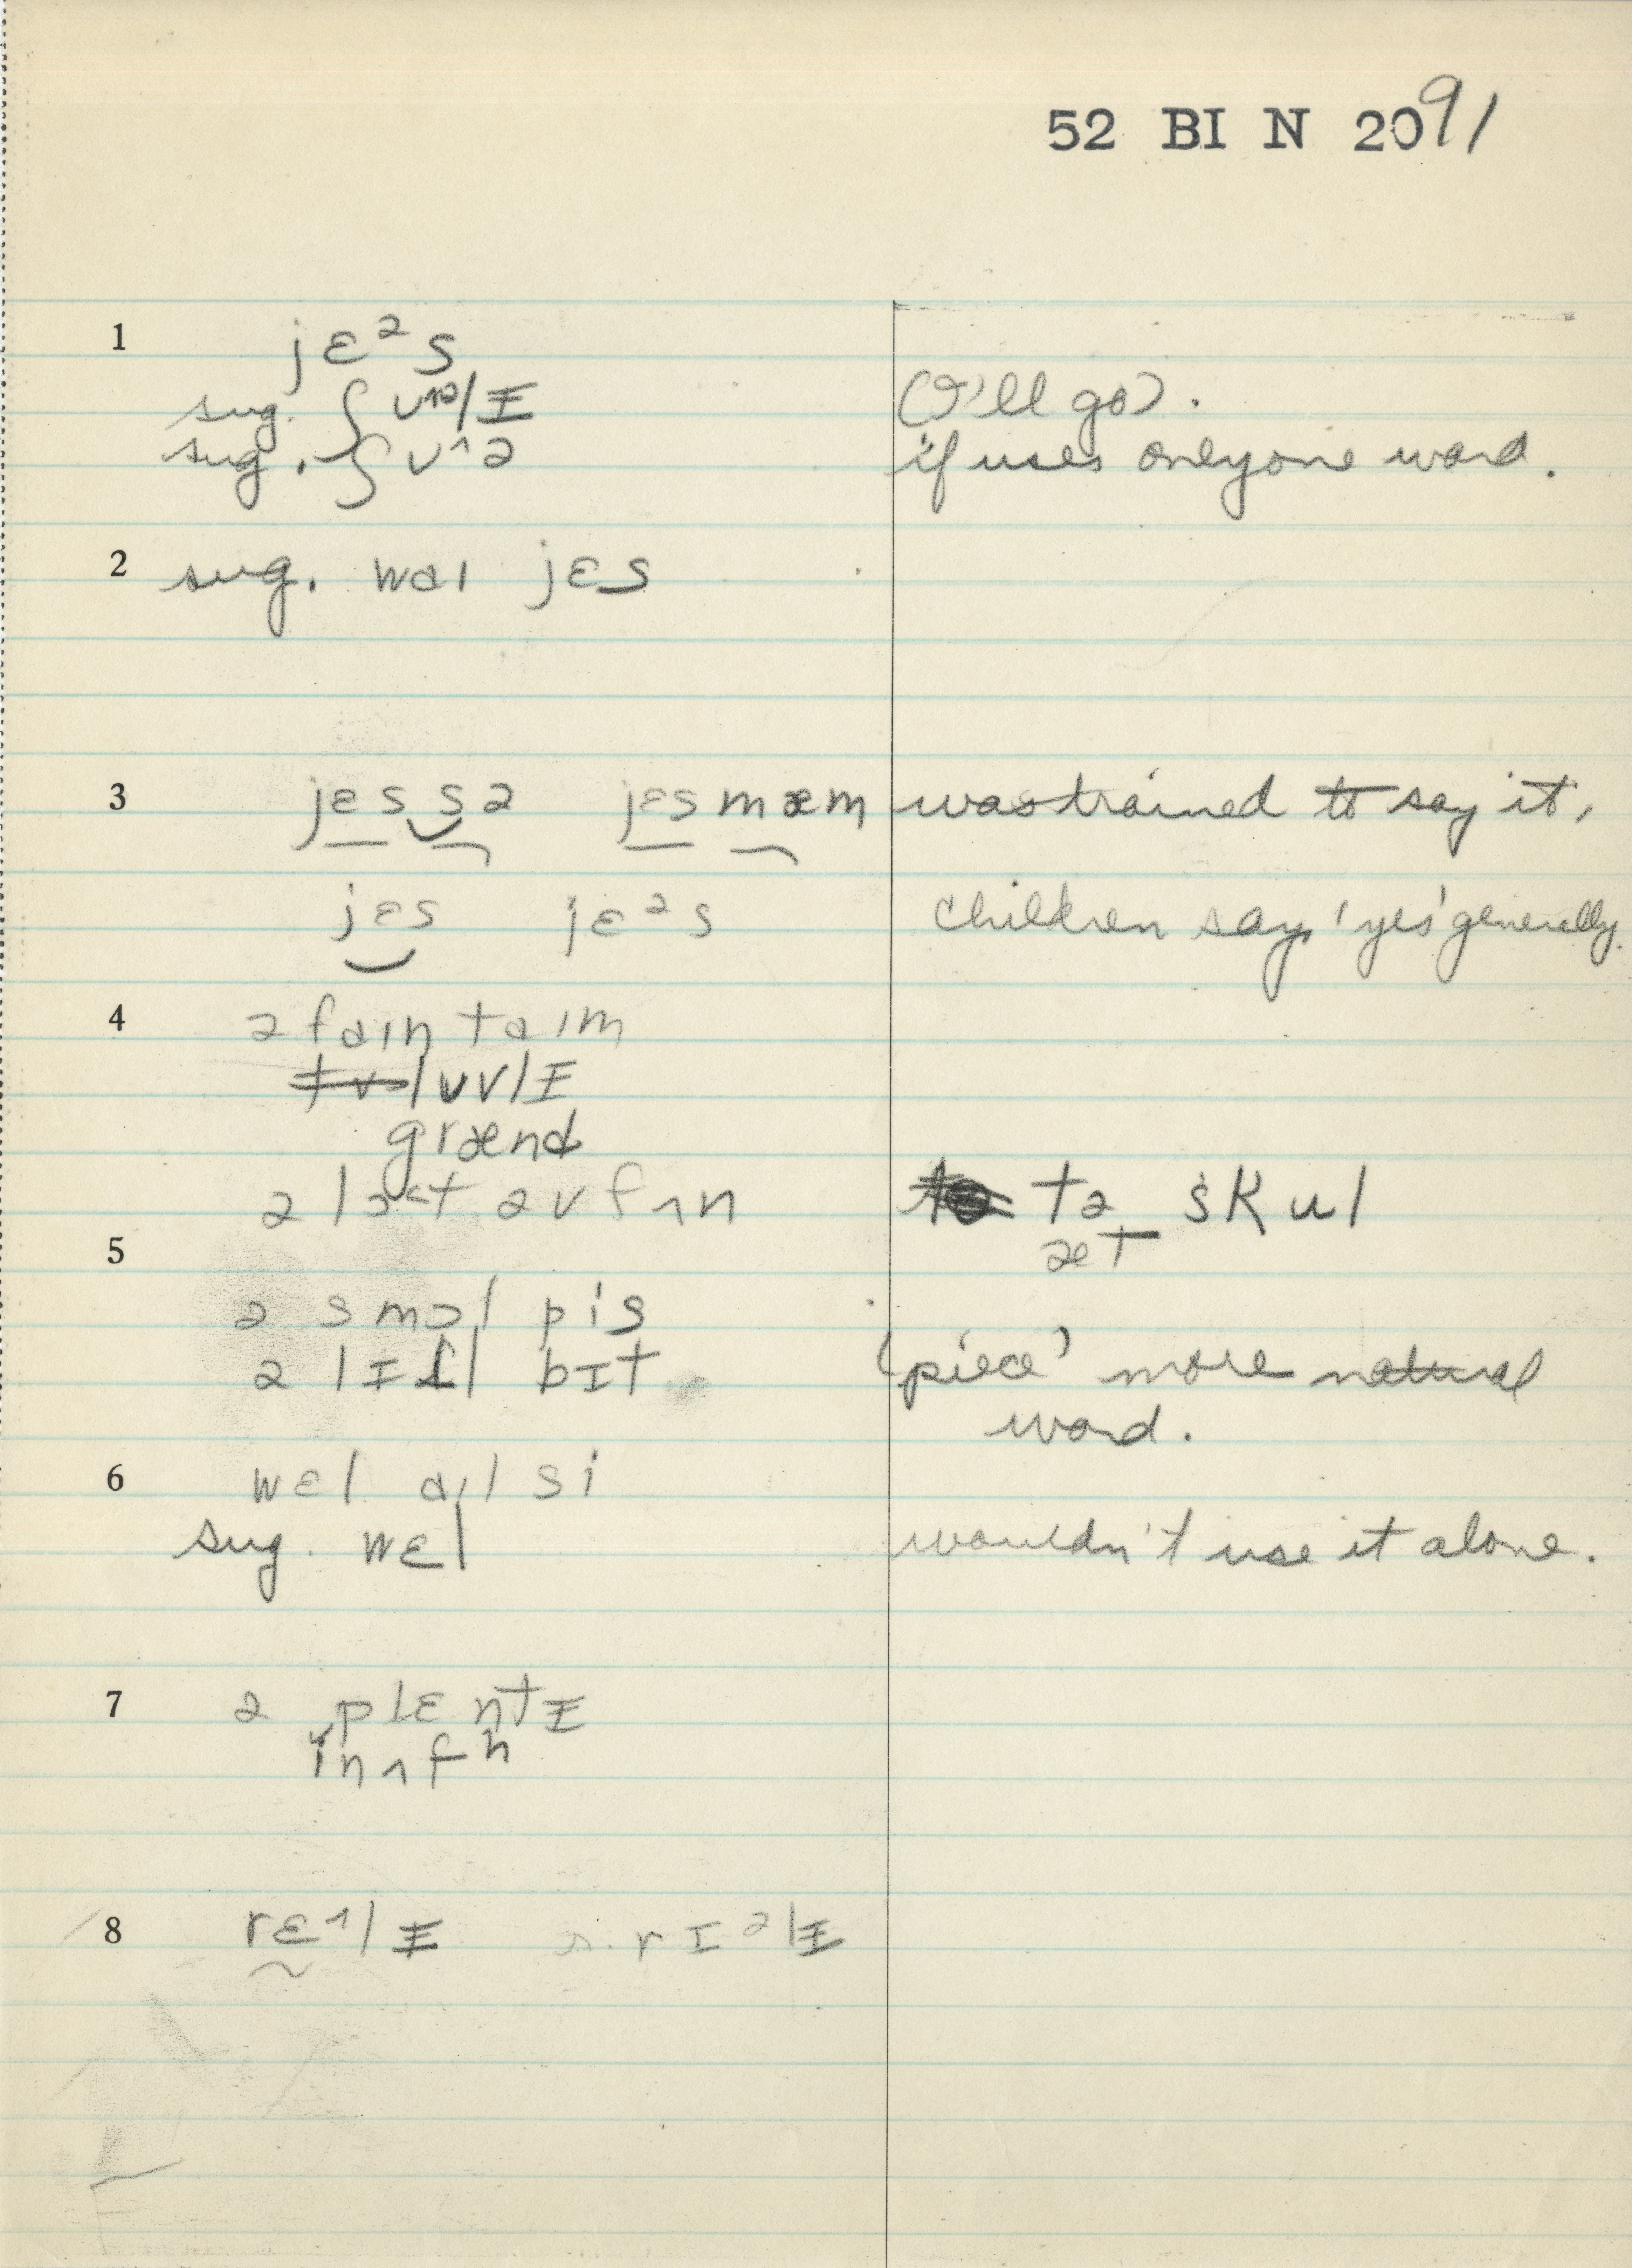 52 BI N 2091
1 jɛᵊs
sug. ʃʊɚlɪ (I'll go).
sug. ʃʊ^ə if uses only one word.
2 sug. wəl jɛs
3 jɛs sə jɛs mæm was trained to say it,
jɛs jɛᵊs children say 'yes' generally.
4 ə faɪn taɪm
lʌvlɪ
grænd
ə lɔt əv fʌn tə skul
5 æt
ə smɔl pis
ə lɪtl bɪt 'piece' more natural
word.
6 wɛl aɪl si
sug. wɛl wouldn't use it alone.
7 ə plɛntɪ
ɪnʌfʰ
8 rɛ^lɨ s. rɪᵊlɨ